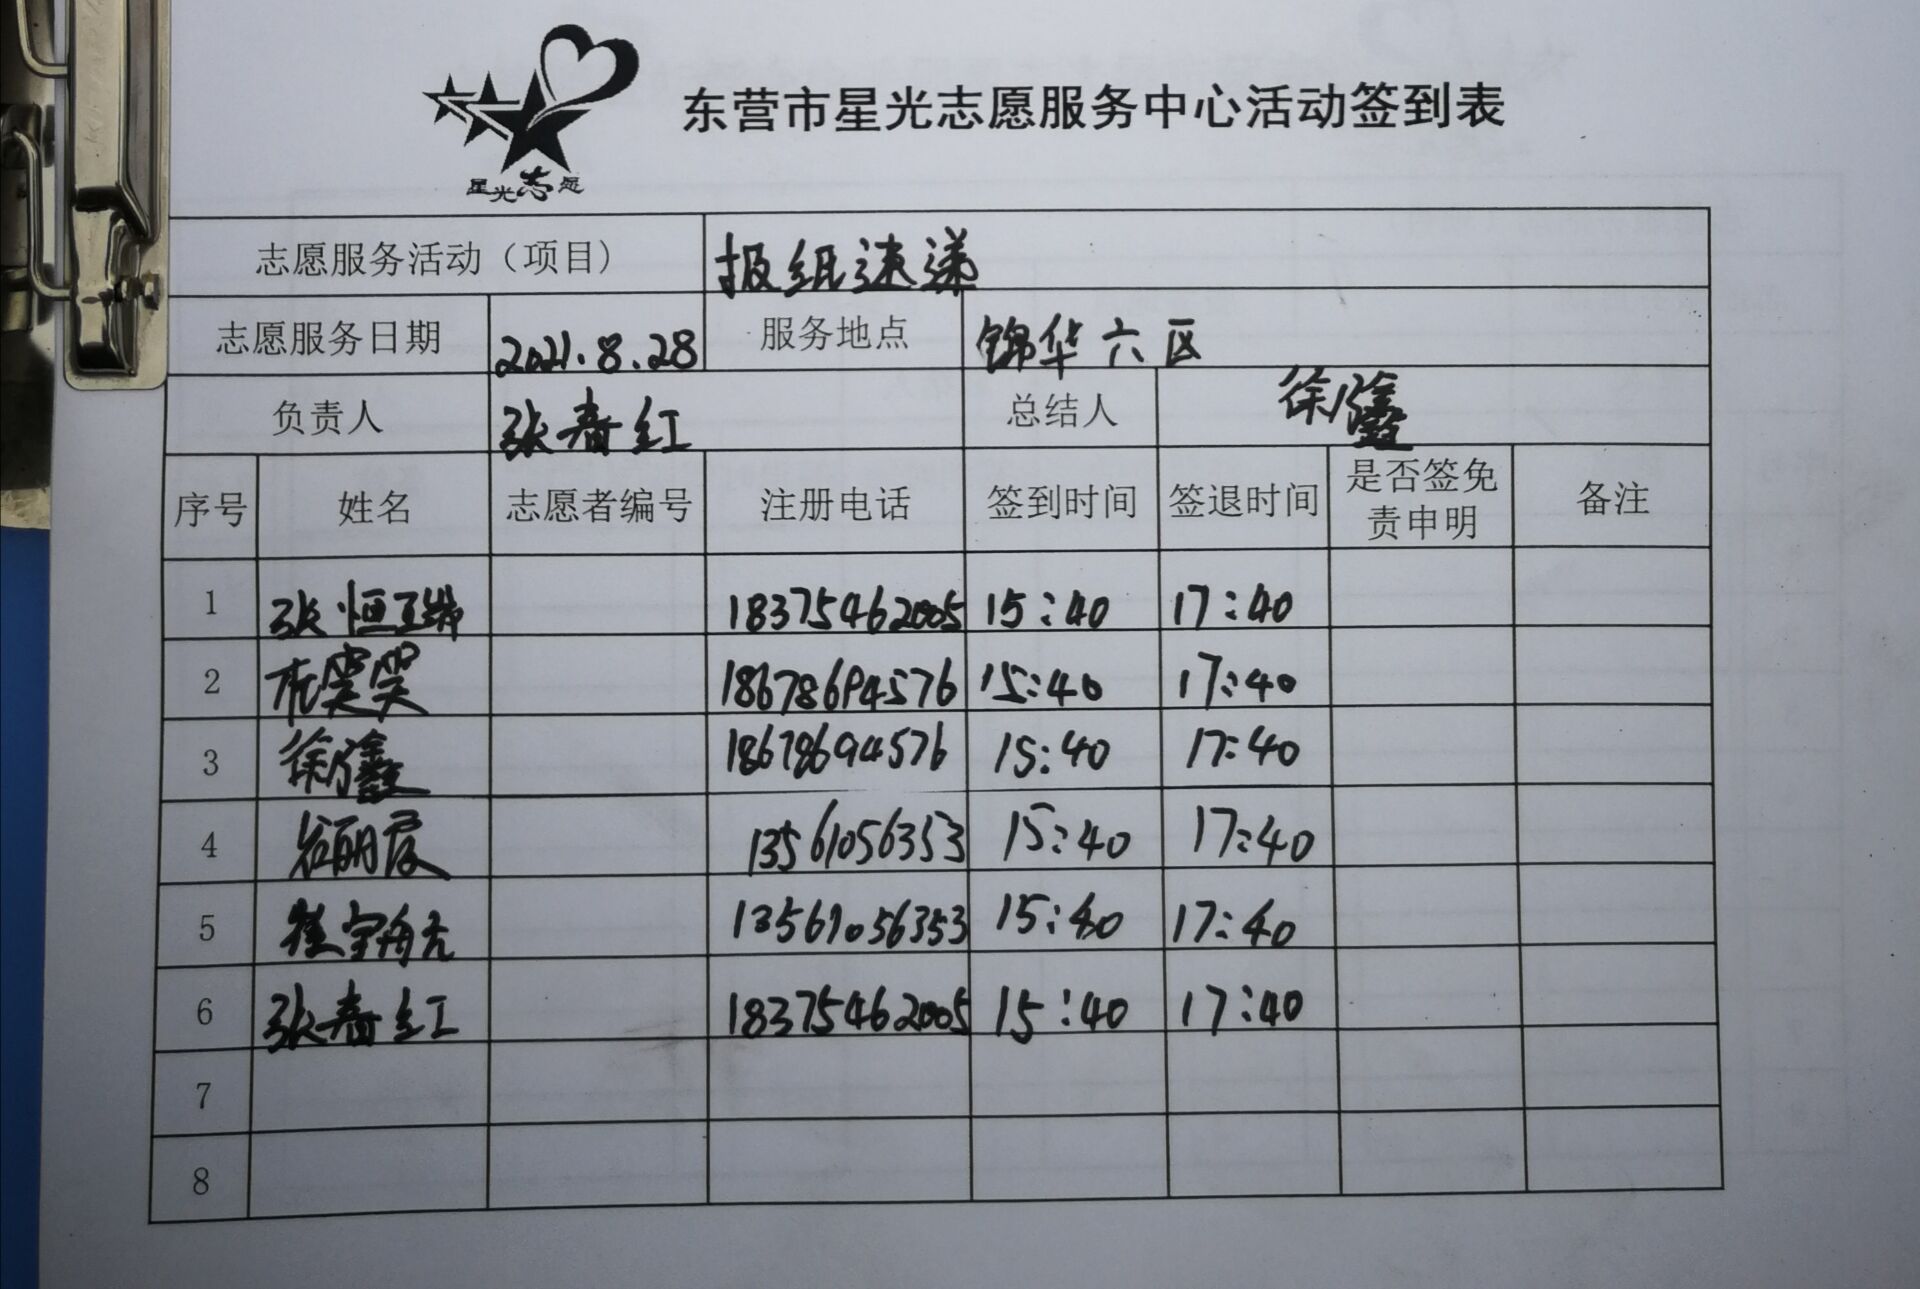 星光志愿
东营市星光志愿服务中心活动签到表
志愿服务活动（项目） 报纸速递
志愿服务日期 2021.8.28 服务地点 锦华六区
负责人 张春红 总结人 徐鑫
序号 姓名 志愿者编号 注册电话 签到时间 签退时间 是否签免责申明 备注
1 张恒瑞 18375462005 15:40 17:40
2 笑笑 18678694576 15:40 17:40
3 徐鑫 18678694576 15:40 17:40
4 13561056353 15:40 17:40
5 13561056353 15:40 17:40
6 张春红 18375462005 15:40 17:40
7
8